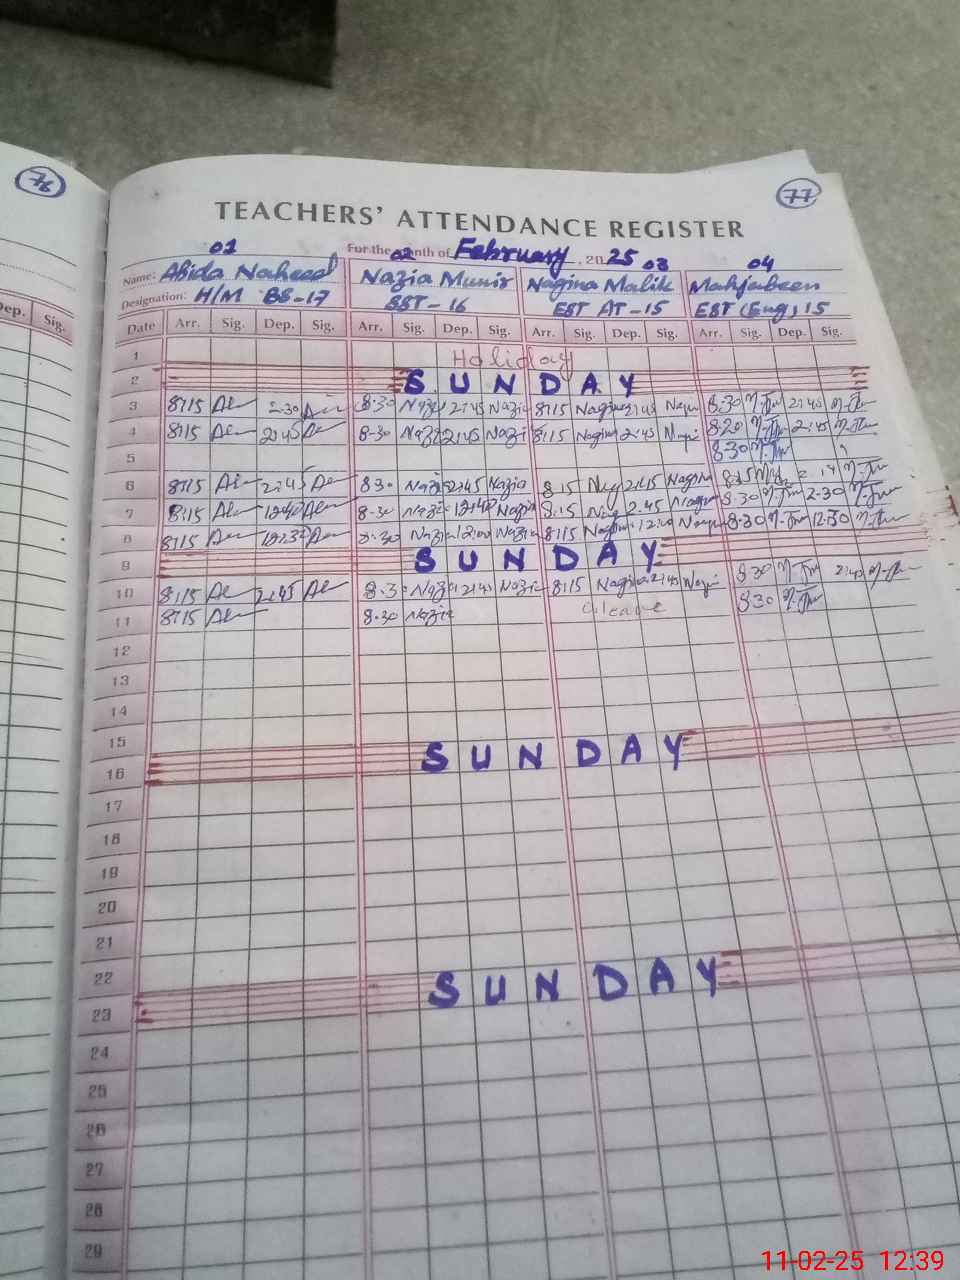 76
77
TEACHERS' ATTENDANCE REGISTER
01 02 03 04
For the month of February, 2025
Name: Abida Naheed Nazia Munir Nagina Malik Mahjabeen
Designation: H/M BS-17 SST-16 EST AT-15 EST (Eng) 15
Dep. Sig. Date Arr. Sig. Dep. Sig. Arr. Sig. Dep. Sig. Arr. Sig. Dep. Sig. Arr. Sig. Dep. Sig.
1 Holiday
2 SUNDAY
3 8:15 2:30 8:30 Nazia 2:45 Nazia 8:15 Nagina 2:45 8:30 2:45
4 8:15 2:45 8-30 Nazia 2:45 Nazia 8:15 Nagina 2:45 8:20 2:45
5 8:30
6 8:15 2:45 830 Nazia 2:45 Nazia 8:15 2:15 Nagina 8:15
7 8:15 12:40 8-30 Nazia 12:40 Nazia 8:15 2.45 Nagina 8-30 2-30
8 8:15 12:32 8:30 Nazia 12:00 Nazia 8:15 Nagina 12:00 8-30 12:30
9 SUNDAY
10 8:15 2:45 8:30 Nazia 2:45 Nazia 8:15 Nagina 2:45 830 2:45
11 8:15 8.30 Nazia leave 830
12
13
14
15
16 SUNDAY
17
18
19
20
21
22
23 SUNDAY
24
25
26
27
28
29
11-02-25 12:39